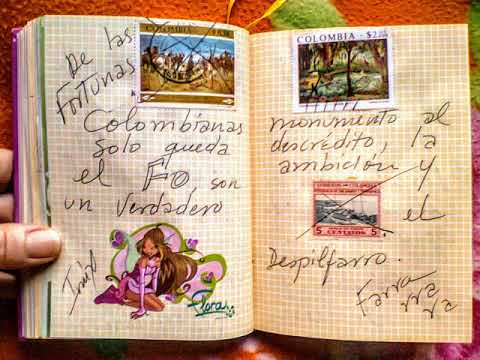 De las
Fortunas
Colombianas
Solo queda
el Fo, son
un Verdadero
Flora
COLOMBIA $2.
monumento al
descrédito, la
ambición y
el
5 CENTAVOS 5
Despilfarro.
Farra
rra
rra